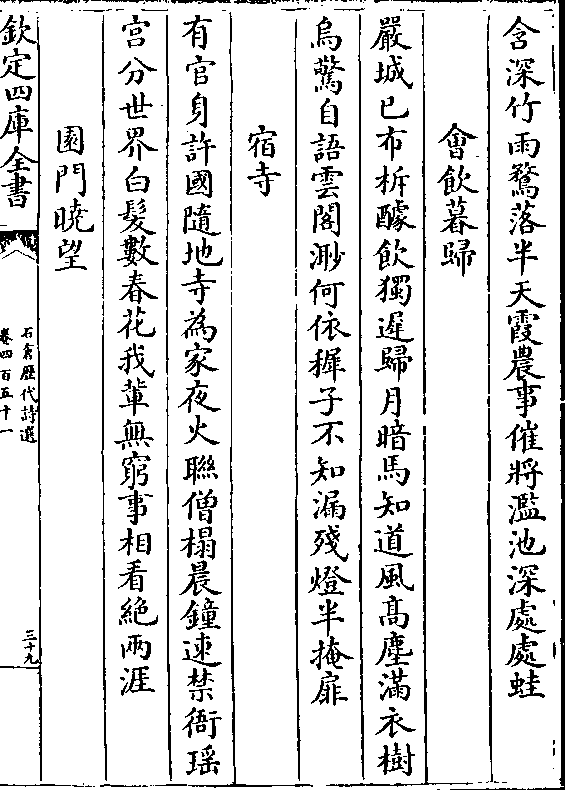 含深竹雨鶩落半天霞農事催將濫池深處處蛙
會飲暮歸
嚴城已布柝醵飲獨遲歸月暗馬知道風髙塵滿衣樹
烏驚自語雲閣渺何依穉子不知漏殘燈半掩扉
宿寺
有官身許國隨地寺為家夜火聯僧榻晨鐘逺禁衙瑶
宫分世界白髮數春花我軰無窮事相看絶兩涯
園門曉望
欽定四庫全書
石倉歴代詩選
卷四百五十一
三十九